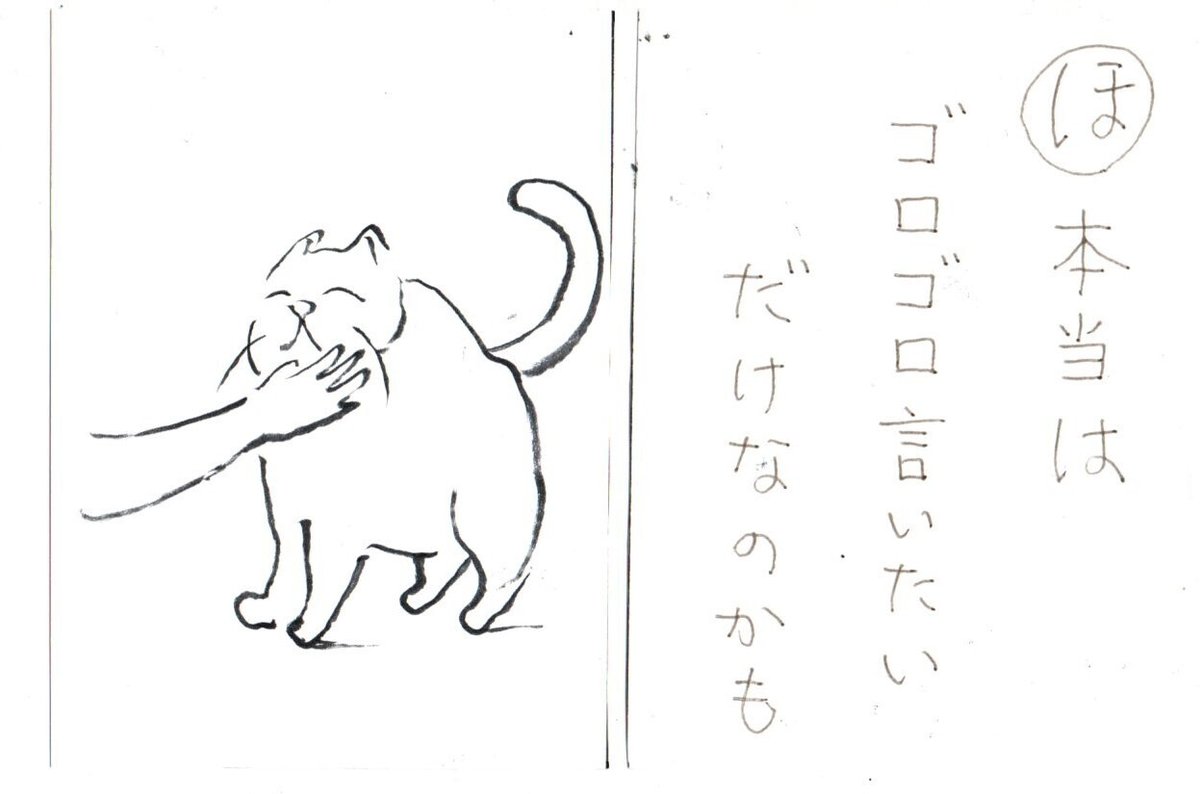 ほ 本当は
ゴロゴロ言いたい
だけなのかも